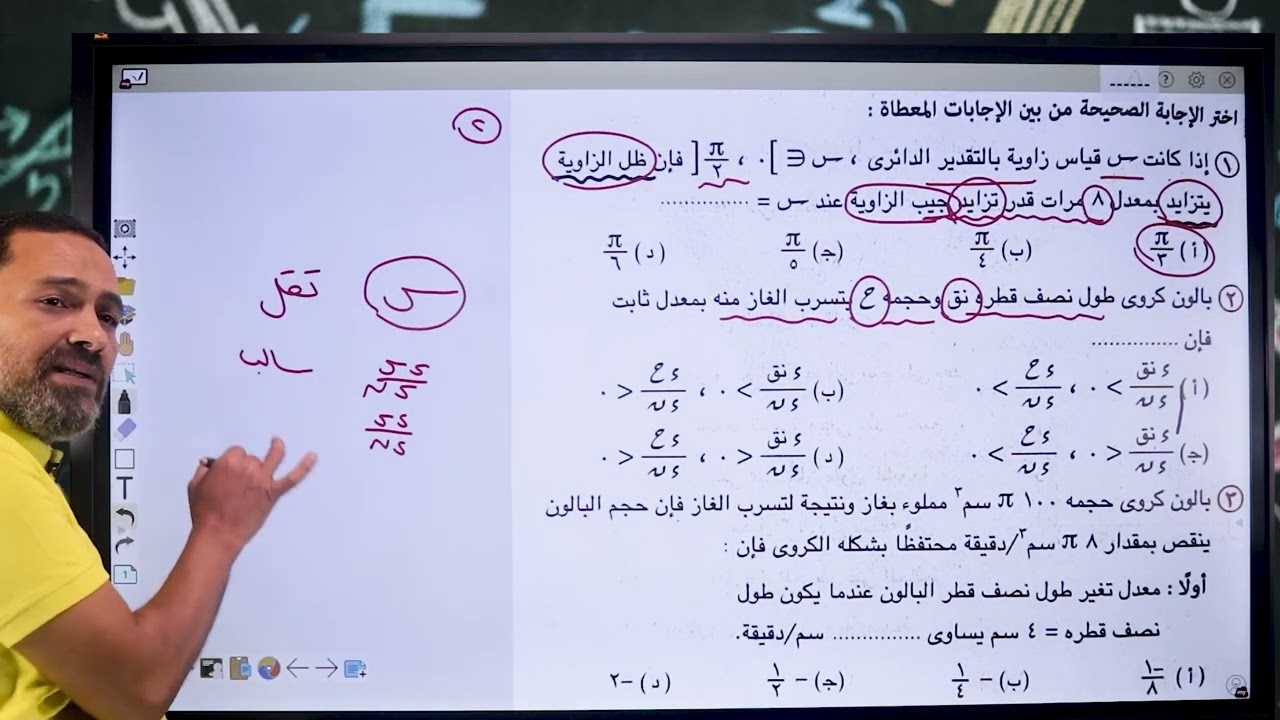 اختر الإجابة الصحيحة من بين الإجابات المعطاة :
① إذا كانت س قياس زاوية بالتقدير الدائرى ، س ∈ ]٠ ، π/٢[ فإن ظل الزاوية
يتزايد بمعدل ٨ مرات قدر تزايد جيب الزاوية عند س = ...............
(أ) π/٣ (ب) π/٤ (جـ) π/٥ (د) π/٦
② بالون كروى طول نصف قطره نق وحجمه ح يتسرب الغاز منه بمعدل ثابت
فإن ...............
(أ) ءنق/ءن > ٠ ، ءح/ءن < ٠ (ب) ءنق/ءن > ٠ ، ءح/ءن > ٠
(جـ) ءنق/ءن < ٠ ، ءح/ءن > ٠ (د) ءنق/ءن < ٠ ، ءح/ءن < ٠
③ بالون كروى حجمه ١٠٠ π سم٣ مملوء بغاز ونتيجة لتسرب الغاز فإن حجم البالون
ينقص بمقدار ٨ π سم٣/دقيقة محتفظًا بشكله الكروى فإن :
أولًا : معدل تغير طول نصف قطر البالون عندما يكون طول
نصف قطره = ٤ سم يساوى ............... سم/دقيقة.
(أ) -١/٨ (ب) -١/٤ (جـ) -١/٢ (د) -٢
٢
س تقل
سالب
T
١